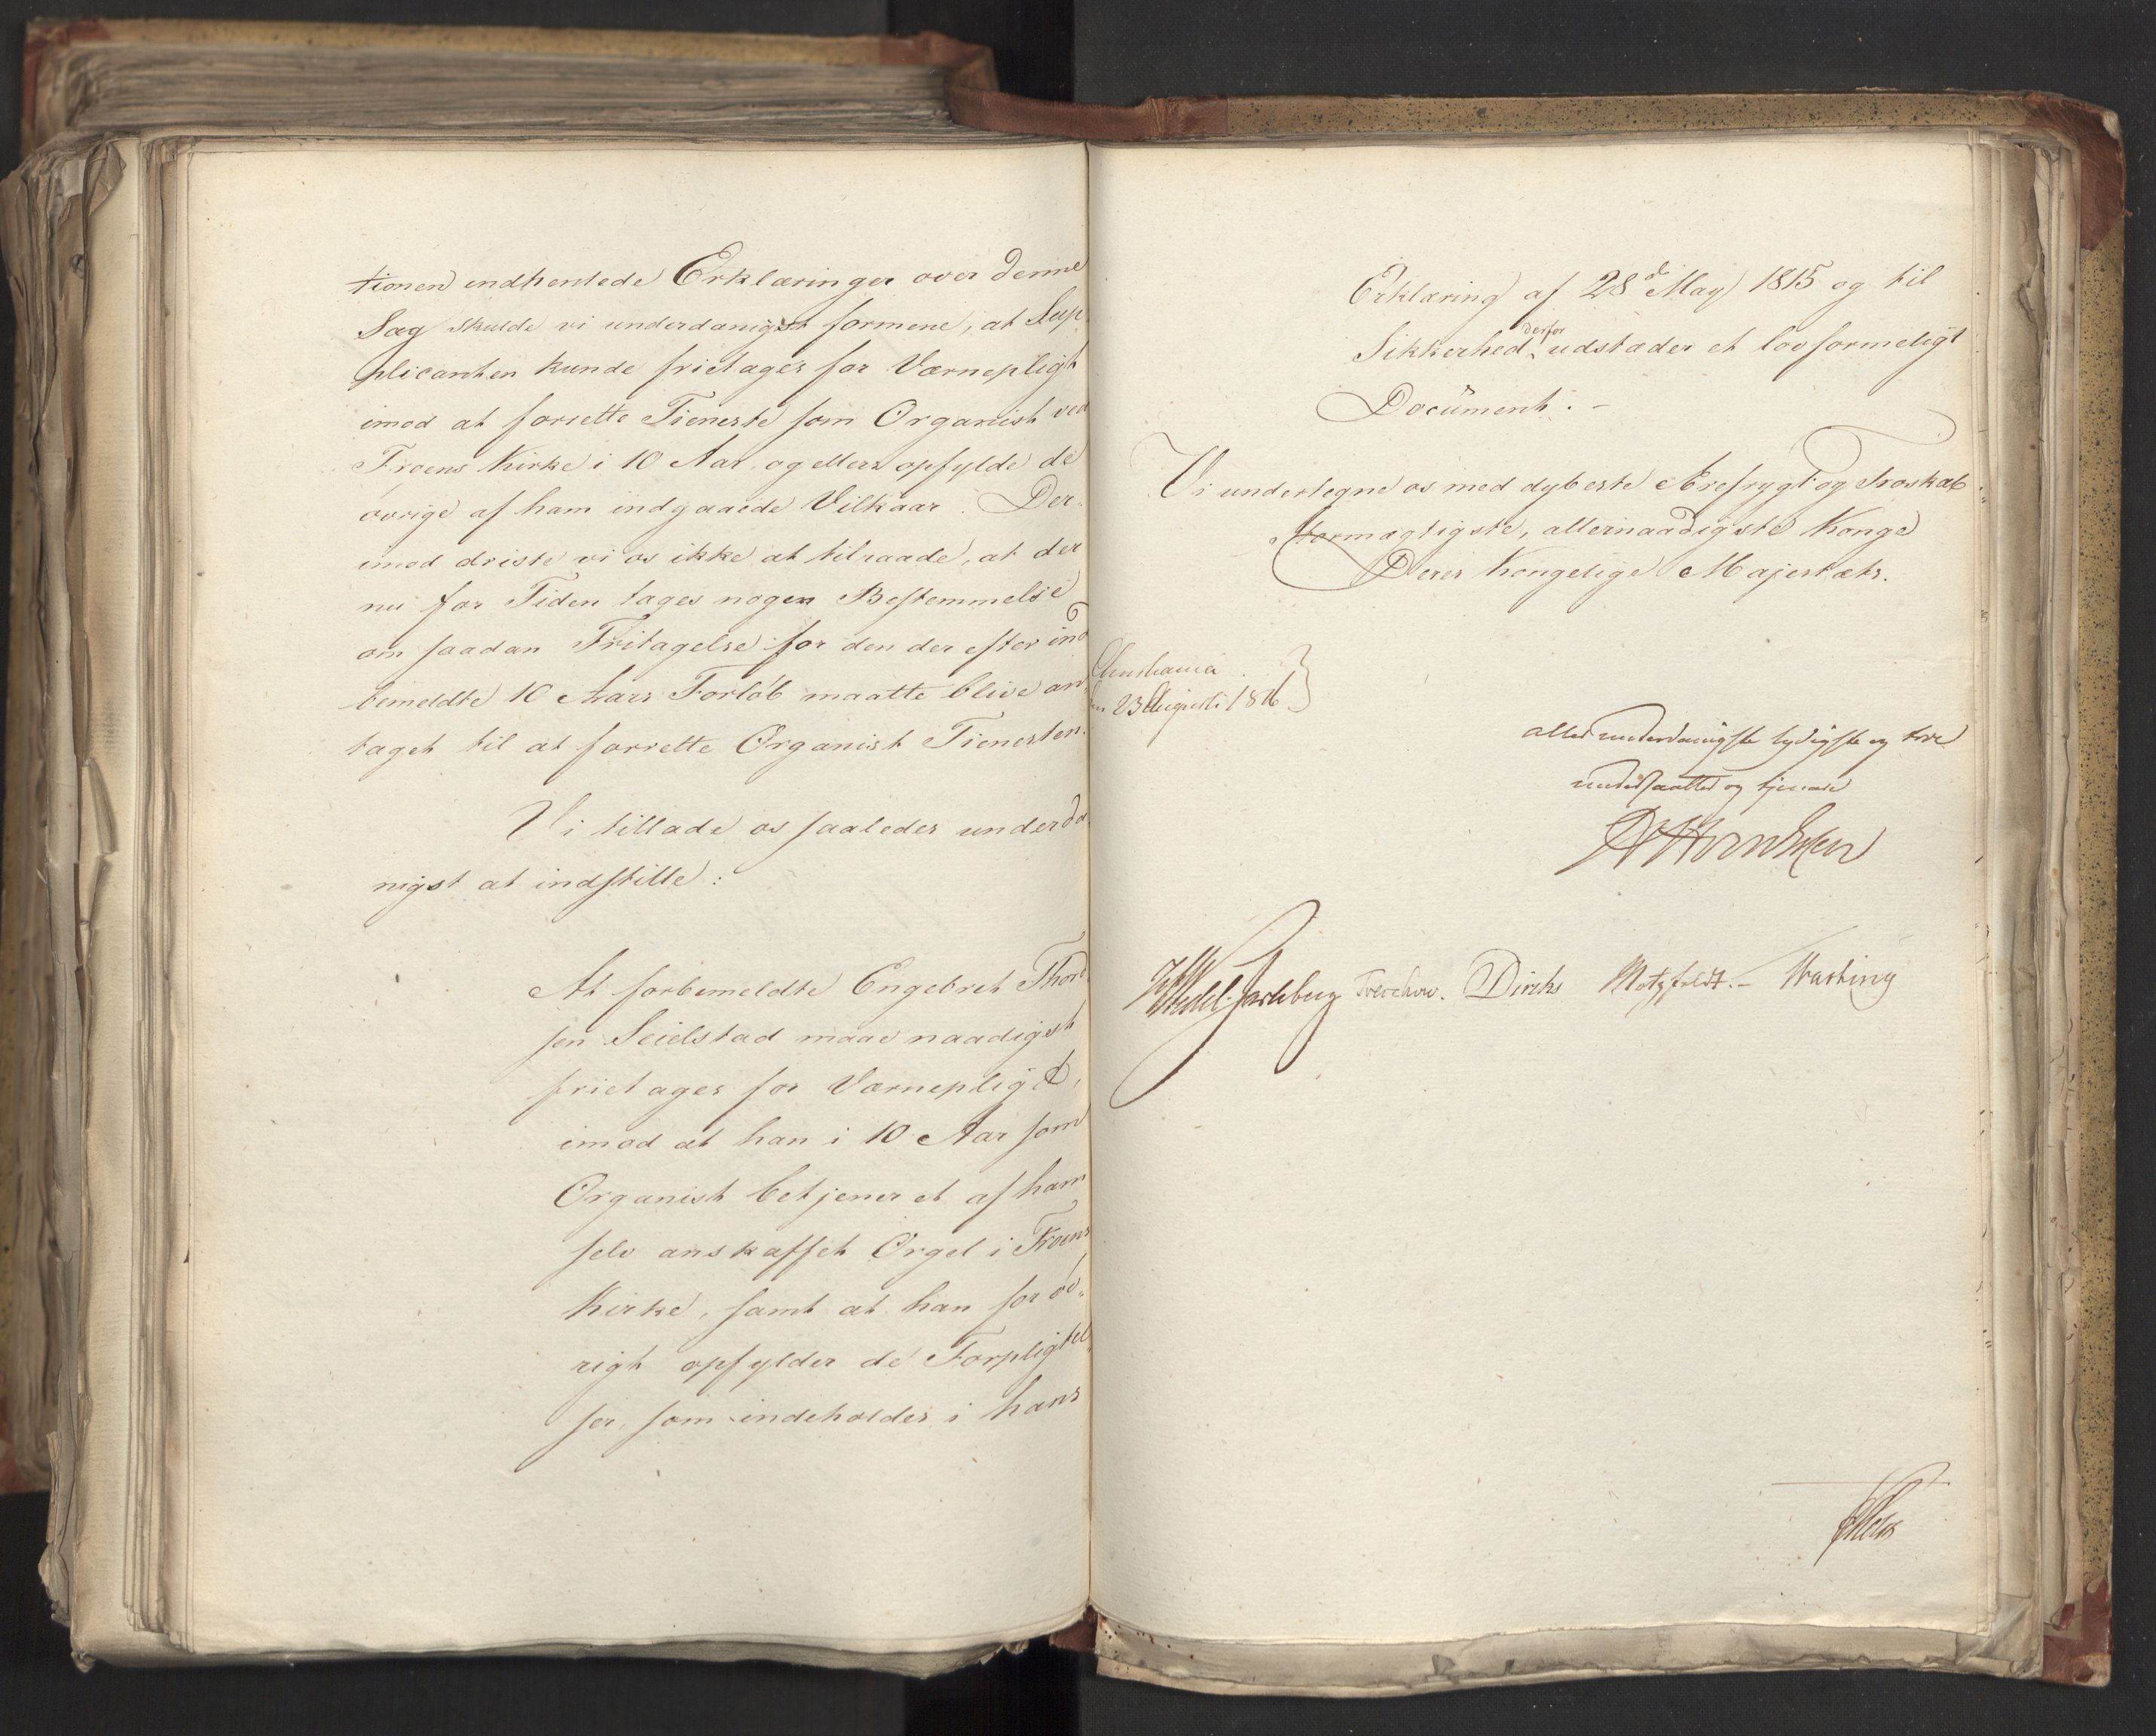 tionen indhentede Erklæringer over denne
Sag skulde vi underdanigst formene, at Sup-
plicanten kunde frietages for Værnepligt
imod at forrette Tieneste som Organist ved
Froens Kirke i 10 Aar, og ellers opfylde de
øvrige af ham indgaaede Vilkaar. Der-
imod driste vi os ikke at tilraade, at der
nu for Tiden tages nogen Bestemmelse
om saadan Fritagelse for den der efter ind
bemeldte 10 Aars Forløb maatte blive an-
taget til at forrette Organist Tienesten.
Vi tillade os saaledes underda
nigst at indstille:
At forbemeldte Engebret Thord
sen Seielstad maae naadigst
frietages for Værnepligt,
imod at han i 10 Aar som
Organist betjener et af ham
selv anskaffet Orgel i Froens
Kirke, samt at han for øv-
rigt opfylder de Forpligtel
ser, som indeholdes i hans
Erklæring af 28d May 1815 og til
Sikkerhed derfor udstæder et lovformeligt
Document.-
Vi undertegne os med dybeste Ærefrygt og Troskab
Stormægtigste, allernaadigste Konge
Deres Kongelige Majestæts.
Christiania
den 23 Augusti 1816
allerunderdanigste lydigste og troe
undersaatter og tjenere
Wedel-Jarlsberg Treschow. Diriks Motzfeldt.-